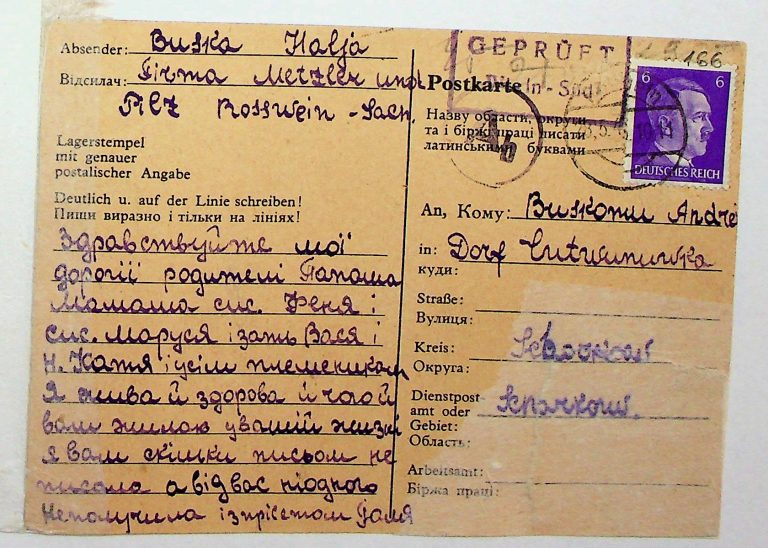 Absender: Buska Halja
Відсилач: Firma Metzler und
Rosswein - Sach.
Lagerstempel
mit genauer
postalischer Angabe
Deutlich u. auf der Linie schreiben!
Пиши виразно і тільки на лініях!
Здравствуйте мої
дорогії родителі Папаша
Мамаша сис. Феня і
сис. Маруся і зать Вася і
н. Катя і усім племеникам
Я жива й здорова й чого й
вам жилаю у вашій жизні
я вам скільки письом не
писала а від вас ніодного
Неполучила із прівєтом Галя
GEPRÜFT
166
Postkarte
Назву области, округи
та і біржі праці писати
латинським буквами
Ab
6 6
DEUTSCHES REICH
An, Кому: Buskomu Andrei
in: Dorf
куди:
Straße:
Вулиця:
Kreis:
Округа:
Dienstpost-
amt oder
Gebiet:
Область:
Arbeitsamt:
Біржа праці: